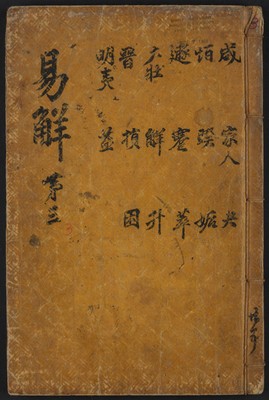 咸 家人 夬
恒 睽 姤
遯 蹇 萃
大壯 解 升
晉 損 困
明夷 益
易解 第三